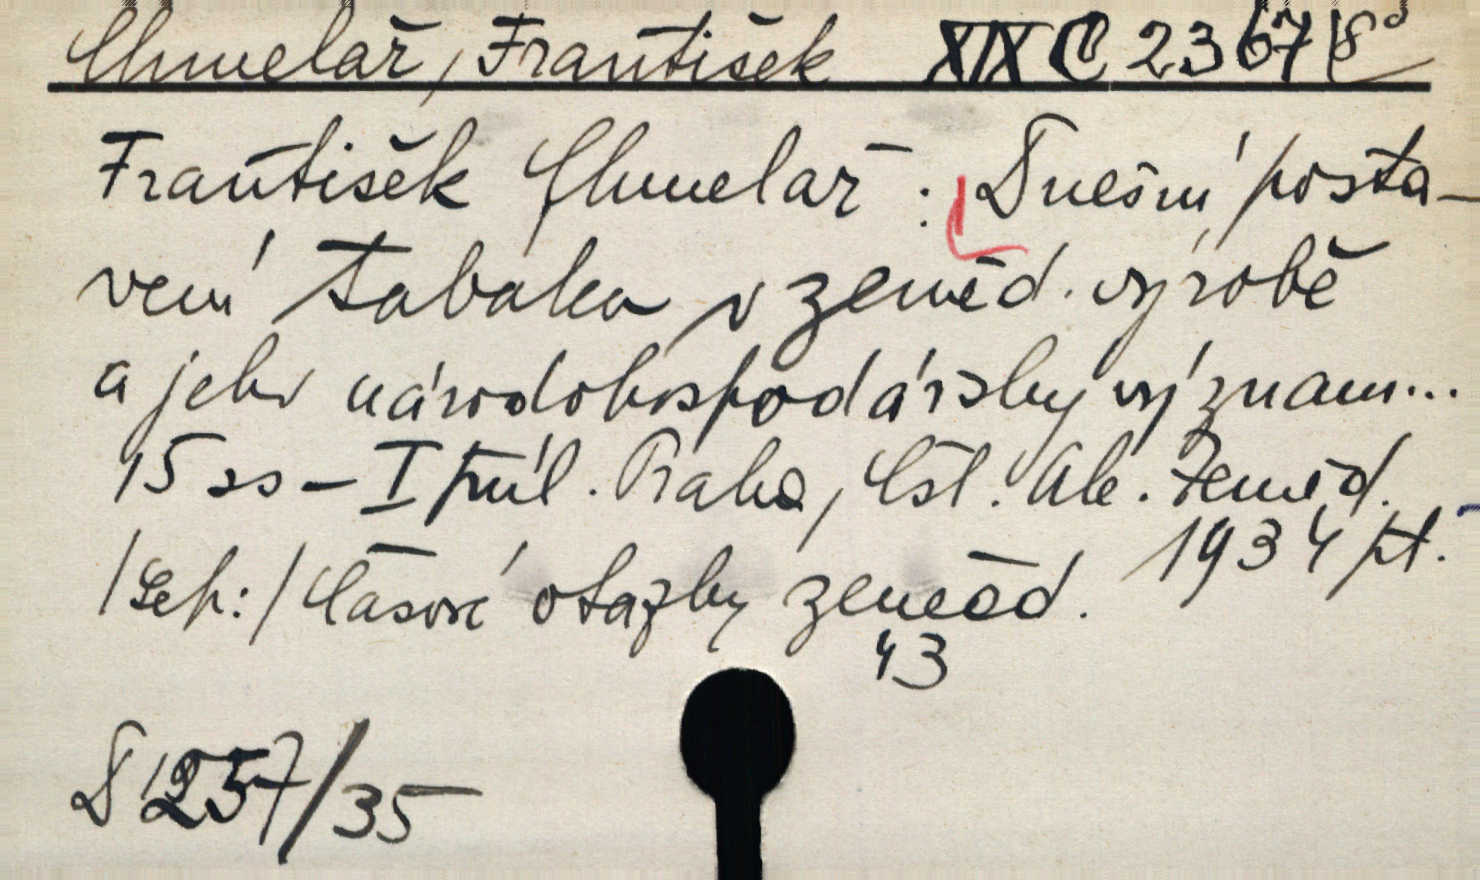 Chmelař, František XIX C 2367 8°
František Chmelař: Dnešní posta-
vení tabáku v zeměd. výrobě
a jeho národohospodářský význam...
15 ss - I příl. Praha, Čsl. Ak. Zeměd.
1934 pt.
/Sep:/ Časové otázky zeměd.
43
D 1257/35